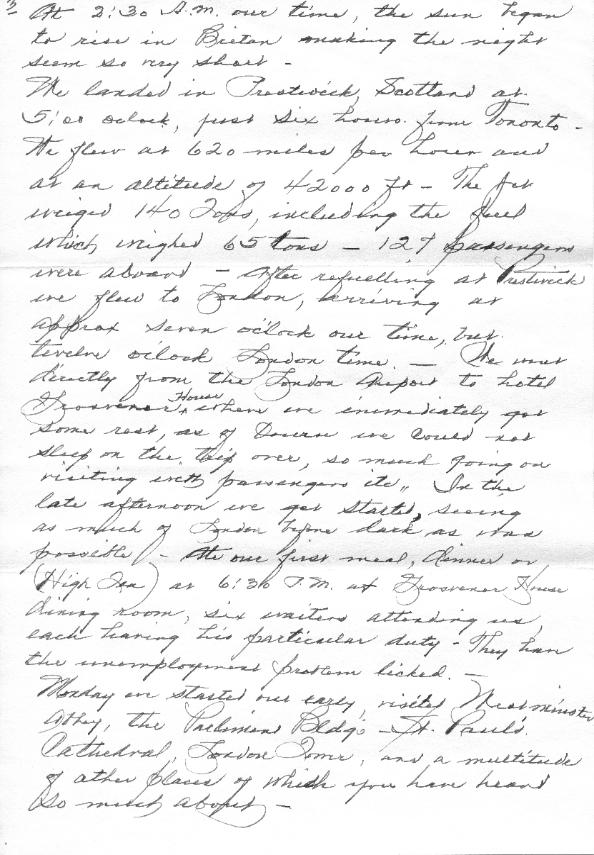 3
At 2:30 A.M. our time, the sun began
to rise in Bretan making the night
seem so very short -
We landed in Prestwick, Scotland at
5:00 oclock, just six hours from Toronto -
We flew at 620 miles per hour and
at an altitude of 42000 ft - The jet
weiged 140 Tons, including the fuel
which weighed 65 tons - 127 passengers
were aboard - After refuelling at Prestwick
we flew to London, arriving at
approx seven o'clock our time, but
twelve o'clock London time. - We went
directly from the London Airport to hotel
Grosvenor House, where we immediately got
some rest, as of course we could not
sleep on the trip over, so much going on
visiting with passengers etc,, In the
late afternoon we got started, seeing
as much of London before dark as was
possible - At our first meal, dinner or
(High Tea) at 6:30 P.M. at Grosvenor House
dining room, six waiters attending us,
each having his particular duty - They have
the unemployment problem licked. -
Monday we started out early, visited Westminster
Abbey, the Parliment Bldgs - St. Paul's
Cathedral, London Tower, and a multitude
of other places of which you have heard
so much about -